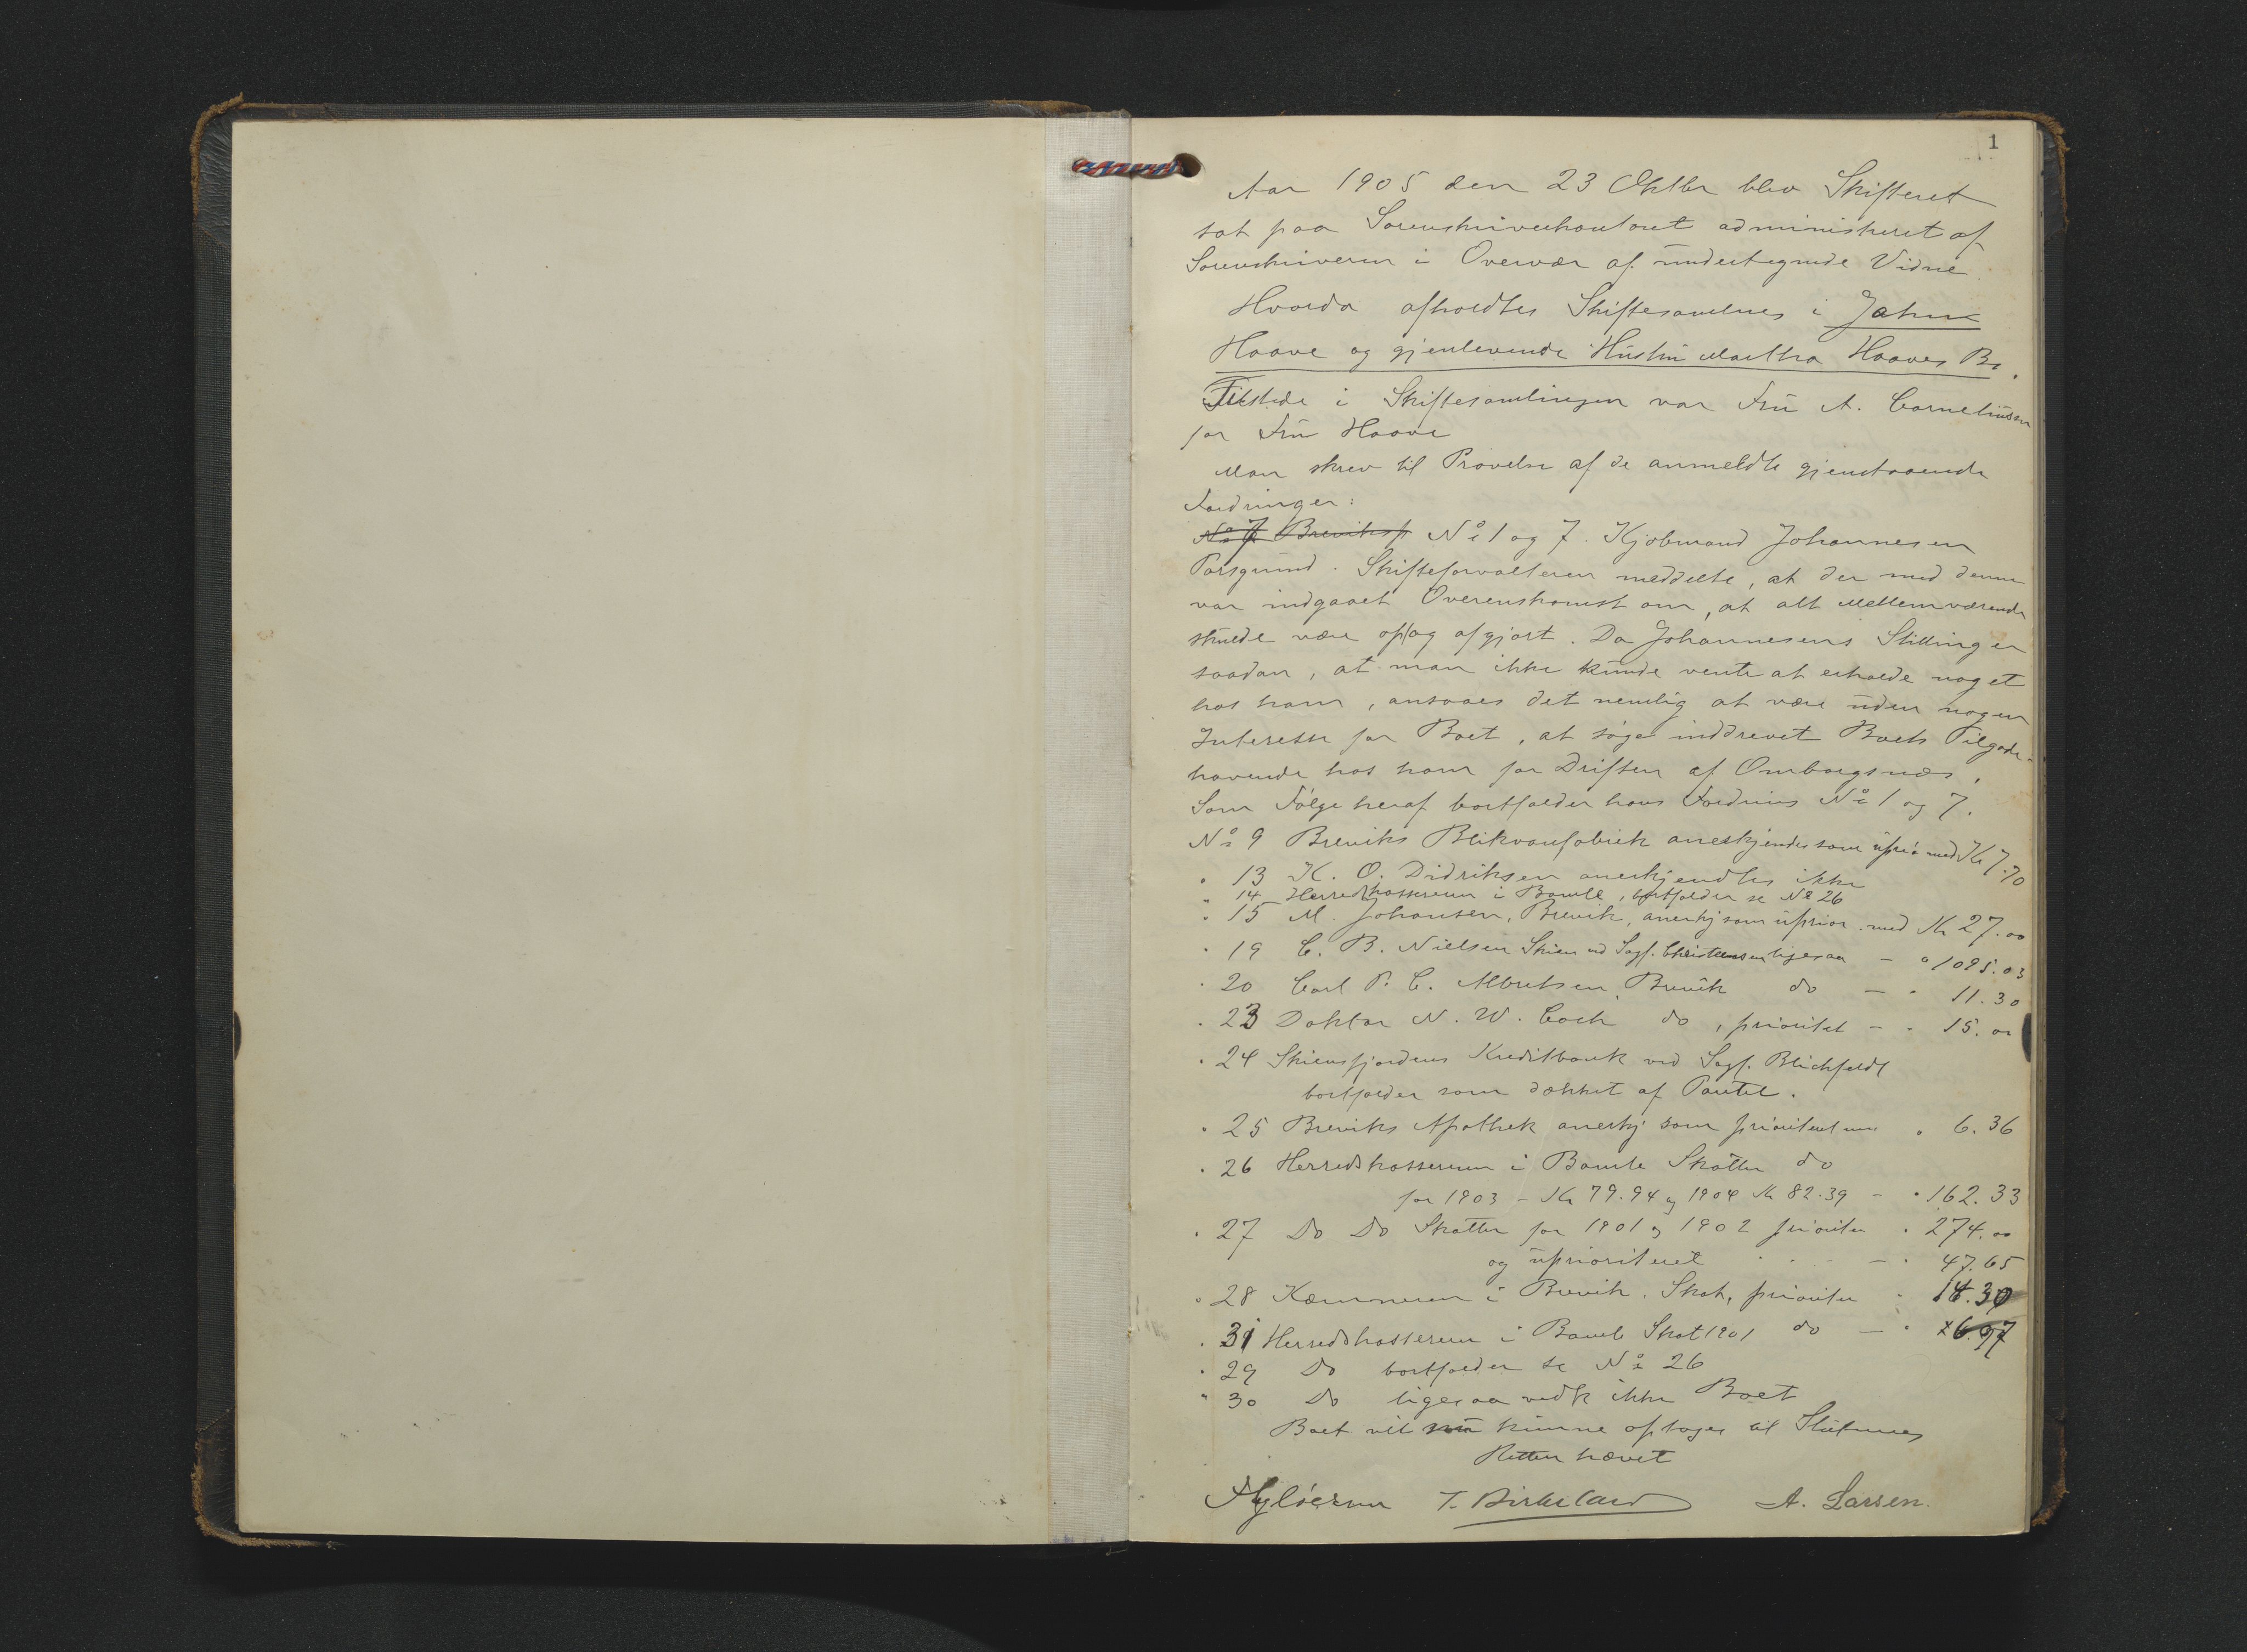 1
Aar 1905 den 23 Oktbr blev Skifteret
sat paa Sorenskriverkontoret administreret af
Sorenskriveren i Overvær af undertegnede Vidne.
Hvorda afholdtes Skiftesamlings i Jahn
Haave og gjenlevende Hustru Martha Haaves Bo.
Tilstede i Skiftesamlingen var Fru A. Corneliussen
for Fru Haave
Man skrev til Prøvelse af de anmeldte gjenstaaende
Fordringer:
No 7 Breviksf No 1 og 7. Kjøbmand Johannesen
Porsgrund. Skifteforvalteren meddelte, at der med denne
var indgaaet Overenskomst om, at alt Mellemværende
skulde være op og afgjort. Da Johannesens Stilling er
saadan, at man ikke kunde vente at erholde noget
hos ham, ansaaes det nemlig at være uden nogen
Interesse for Boet, at søge inddrevet Boets Tilgode-
havende hos ham for Driften af Omborgsnæs.
Som Følge heraf bortfalder hans Fordring No 1 og 7.
No 9 Breviks Blikvarefabrik anerkjendes som uprio med Kr 7.70
" 13 K. O. Didriksen anerkjendtes ikke
" 14 Herredskassereren i Bamle, bortfalder se No 26
" 15 M. Johansen, Brevik, anerkj som uprior. med Kr 27.00
" 19 C. B. Nielsen Skien ved Sagf. Christensen ligesaa - " 1095.03
" 20 Carl P. C. Albretsen Brevik do - " 11.30
" 23 Doktor N. W. Coch do, prioritet - " 15.00
" 24 Skiensfjordens Kreditbank ved Sagf. Blichfeldt
bortfalder som dækket af Pantet.
" 25 Breviks Apothek anerkj som prioriteret med " 6.36
" 26 Herredskassereren i Bamle Skatter do
for 1903 - Kr 79.94 og 1904 Kr 82.39 - " 162.33
" 27 Do Do Skatter for 1901 og 1902 prioriter " 274.00
og uprioriteret - " 47.65
" 28 Kæmneren i Brevik. Skat, prioriter " 18.30
" 31 Herredskassereren i Bamle Skat 1901 do - "
" 29 Do bortfalder se No 26
" 30 Do ligesaa vedk ikke Boet
Boet vil nu kunne optages til Slutning
Retten hævet
T. Birkeland A. Larsen.